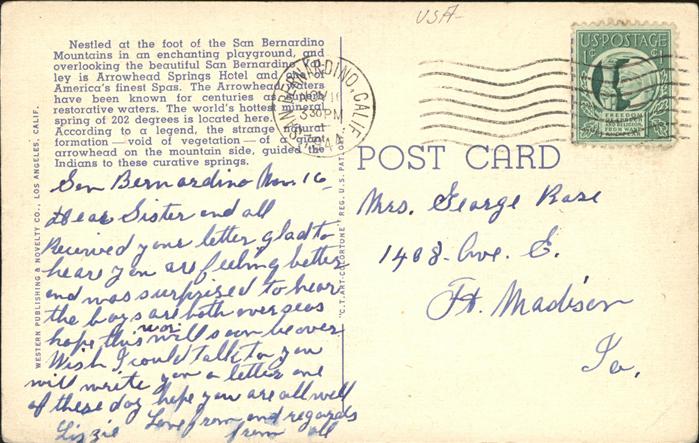 USA
Nestled at the foot of the San Bernardino
Mountains in an enchanting playground, and
overlooking the beautiful San Bernardino
ley is Arrowhead Springs Hotel and
America's finest Spas. The Arrowhead
have been known for centuries as
restorative waters. The world's hottest mineral
spring of 202 degrees is located here.
According to a legend, the strange natural
formation—void of vegetation—of a giant
arrowhead on the mountain side, guided the
Indians to these curative springs.
SAN BERNARDINO, CALIF.
NOV 16
PM
U·S·POSTAGE
1¢ 1¢
FREEDOM
OF SPEECH
AND RELIGION,
FROM WANT
AND FEAR
POST CARD
WESTERN PUBLISHING & NOVELTY CO., LOS ANGELES, CALIF.
"C.T. ART-COLORTONE" REG. U.S. PAT. OFF.
San Bernardino Nov. 16
Dear Sister and all
Received your letter glad to
hear you are feeling better
and was surprised to hear
the boys are both over seas
hope this war will soon be over
Wish I could talk to you
will write you a letter one
of these day hope you are all well
Lizzie Love from and regards
from all
Mrs. George Rase
1408- Ave. E.
Ft. Madison
Ia.